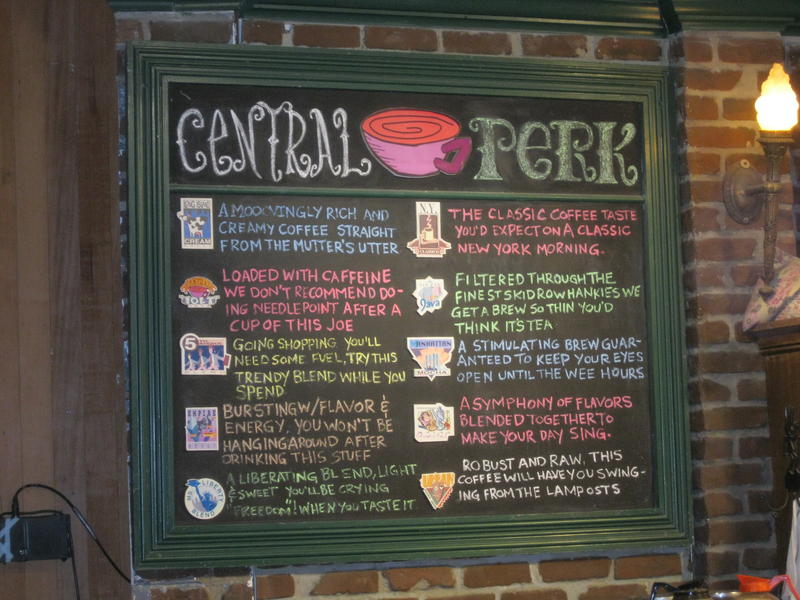 CENTRAL PERK
LONG ISLAND
CREAM
A MOOOVINGLY RICH AND
CREAMY COFFEE STRAIGHT
FROM THE MUTTER'S UTTER
JOE
LOADED WITH CAFFEINE
WE DON'T RECOMMEND DO-
ING NEEDLEPOINT AFTER A
CUP OF THIS JOE
5
GOING SHOPPING YOU'LL
NEED SOME FUEL, TRY THIS
TRENDY BLEND WHILE YOU
SPEND
EMPIRE
BURSTING W/FLAVOR &
ENERGY, YOU WON'T BE
HANGING AROUND AFTER
DRINKING THIS STUFF
MS. LIBERTY
BLEND
A LIBERATING BLEND, LIGHT
& SWEET YOU'LL BE CRYING
"FREEDOM! WHEN YOU TASTE IT
N.Y.
THE CLASSIC COFFEE TASTE
YOU'D EXPECT ON A CLASSIC
NEW YORK MORNING.
Java
FILTERED THROUGH THE
FINEST SKID ROW HANKIES WE
GET A BREW SO THIN YOU'D
THINK IT'S TEA
MANHATTAN
MOCHA
A STIMULATING BREW GUAR-
ANTEED TO KEEP YOUR EYES
OPEN UNTIL THE WEE HOURS
A SYMPHONY OF FLAVORS
BLENDED TOGETHER TO
MAKE YOUR DAY SING.
URBAN
ROBUST AND RAW, THIS
COFFEE WILL HAVE YOU SWING-
ING FROM THE LAMPOSTS